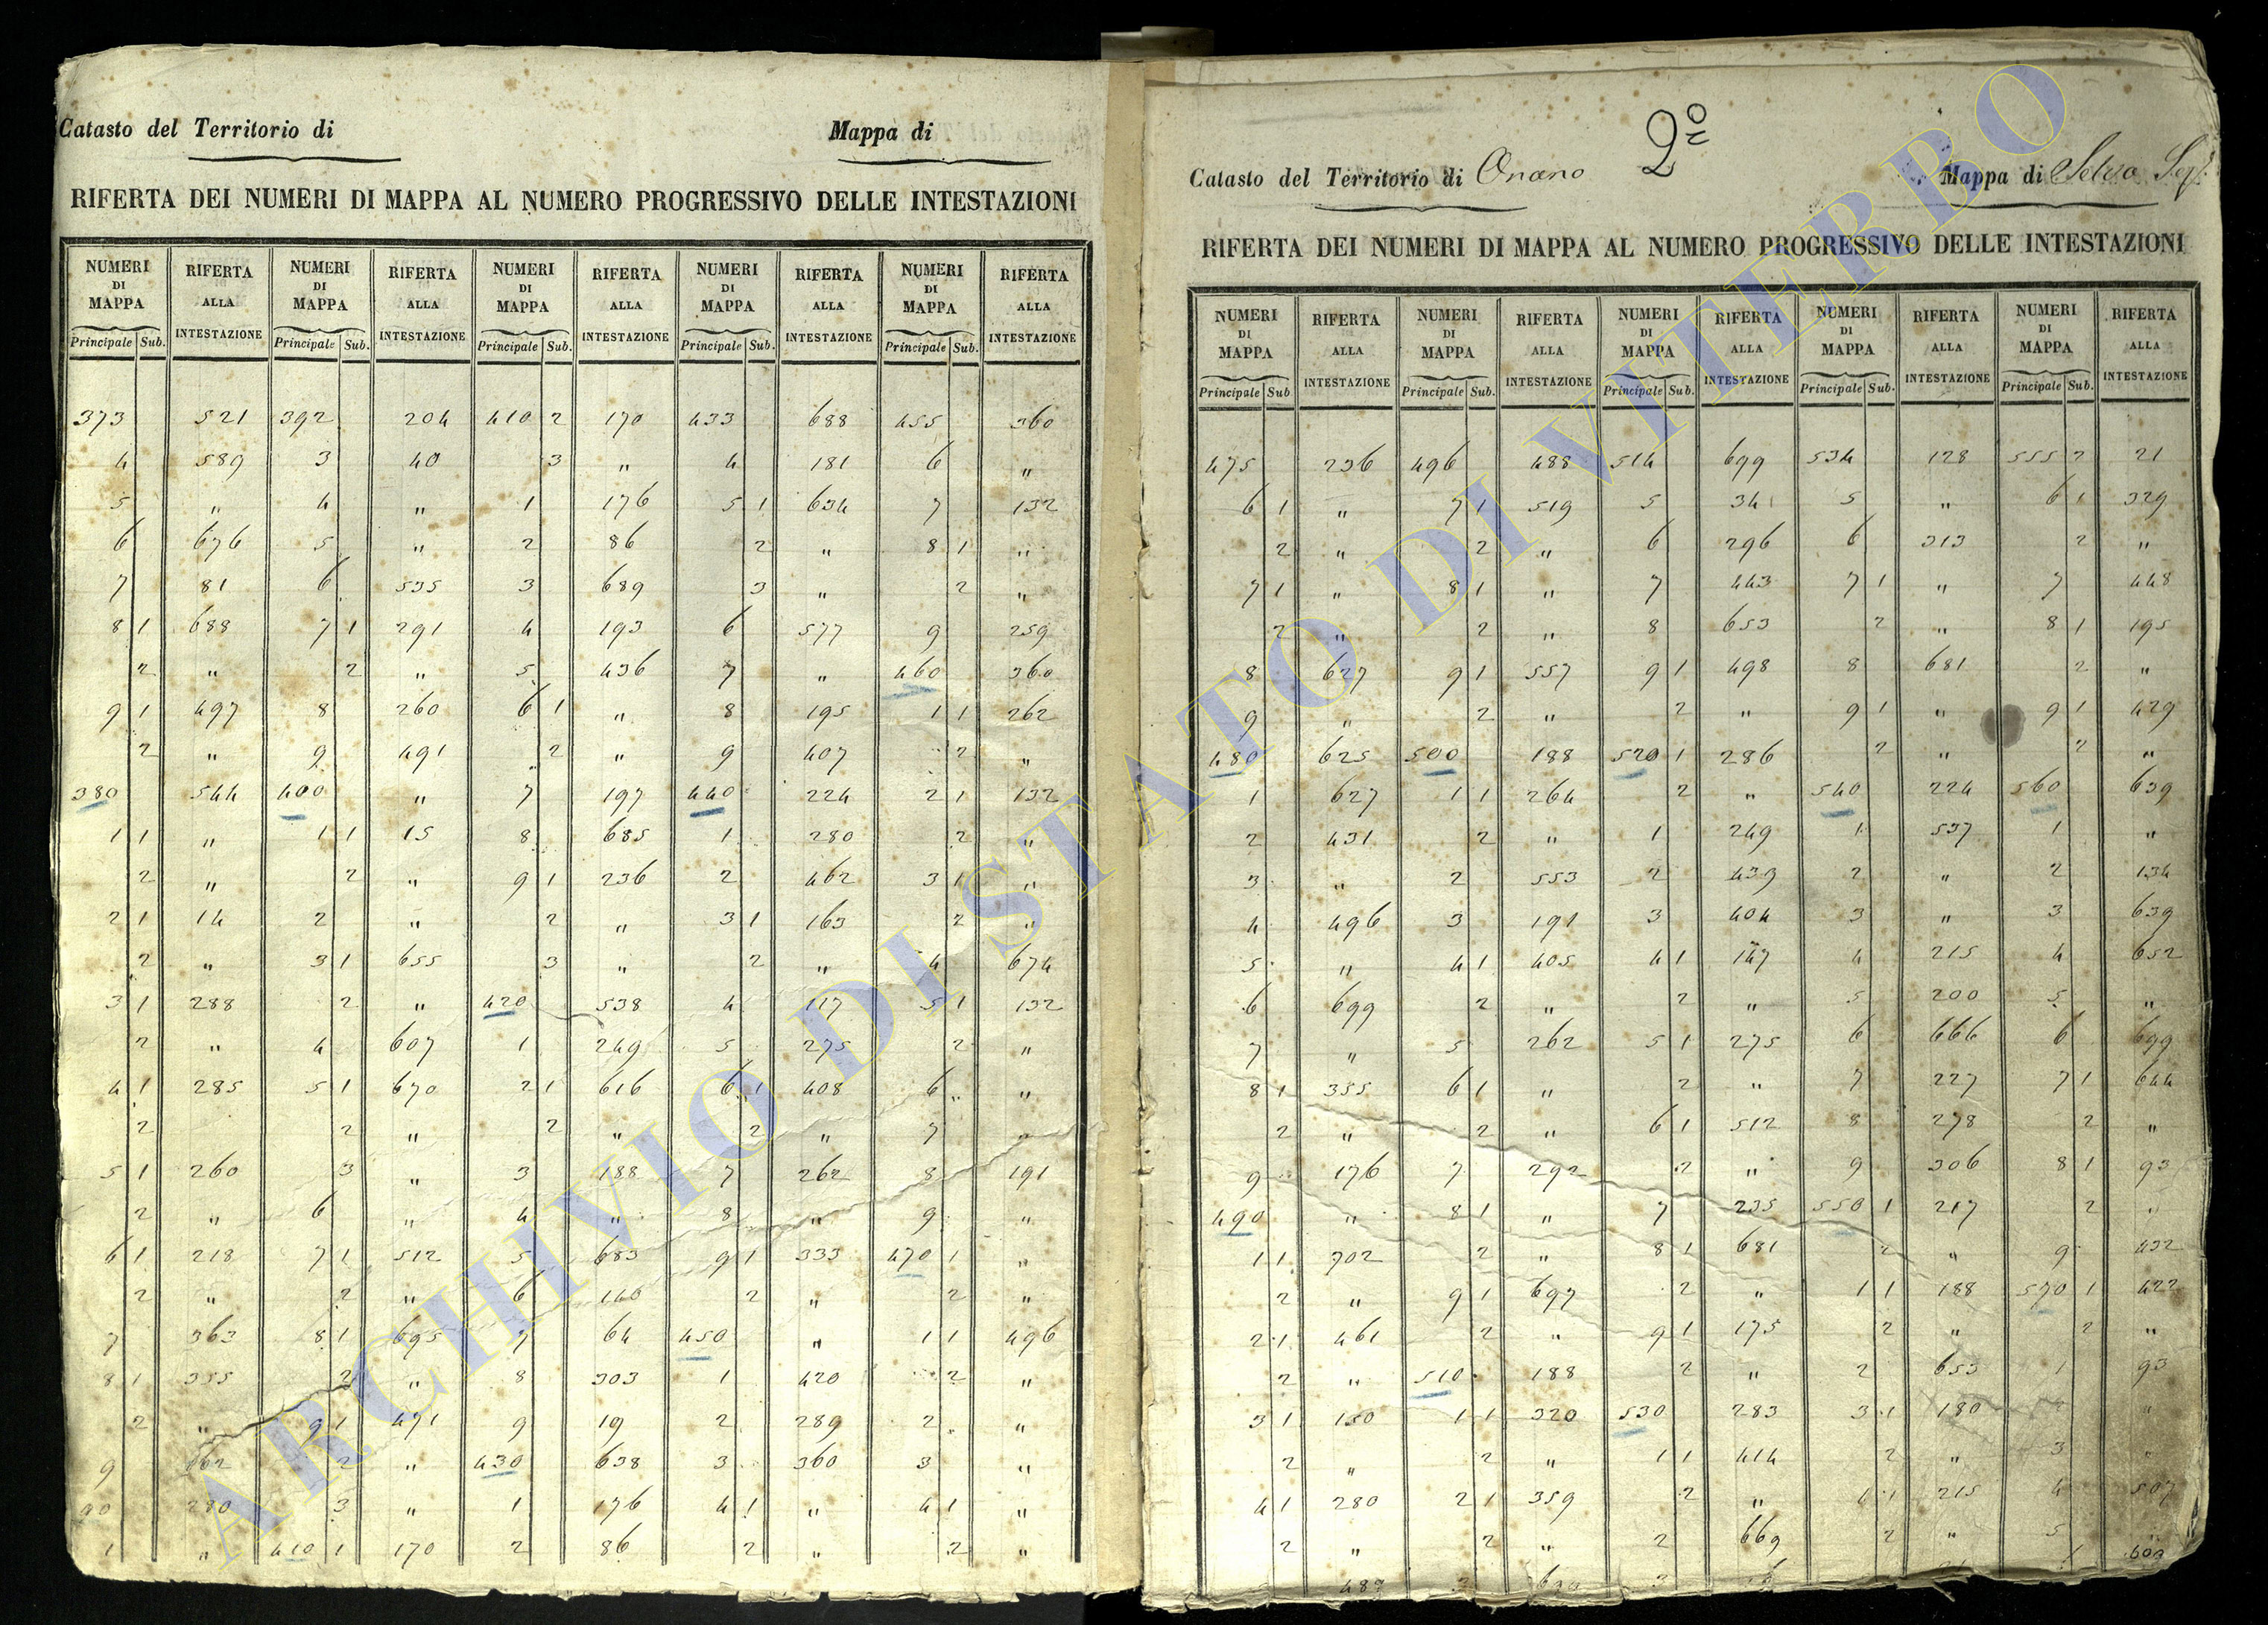 Catasto del Territorio di Mappa di
RIFERTA DEI NUMERI DI MAPPA AL NUMERO PROGRESSIVO DELLE INTESTAZIONI
NUMERI DI MAPPA RIFERTA ALLA INTESTAZIONE NUMERI DI MAPPA RIFERTA ALLA INTESTAZIONE NUMERI DI MAPPA RIFERTA ALLA INTESTAZIONE NUMERI DI MAPPA RIFERTA ALLA INTESTAZIONE NUMERI DI MAPPA RIFERTA ALLA INTESTAZIONE
Principale Sub. Principale Sub. Principale Sub. Principale Sub. Principale Sub.
373 521 392 204 410 2 170 433 688 455 360
4 589 3 40 3 " 4 181 6 "
5 " 4 " 1 176 5 1 634 7 132
6 676 5 " 2 86 2 " 8 1 "
7 81 6 535 3 689 3 " 2 "
8 1 688 7 1 291 4 193 6 577 9 259
2 " 2 " 5 436 7 " 460 360
9 1 497 8 260 6 1 " 8 195 1 1 262
2 " 9 491 2 " 9 407 2 "
380 544 400 " 7 197 440 224 2 1 132
1 1 " 1 1 15 8 685 1 280 2 "
2 " 2 " 9 1 236 2 462 3 1 "
2 1 14 2 " 2 " 3 1 163 2 "
2 " 3 1 655 3 " 2 " 4 674
3 1 288 2 " 420 538 4 117 5 1 132
2 " 4 607 1 249 5 275 2 "
4 1 285 5 1 670 2 1 616 6 1 408 6 "
2 2 " 2 " 2 " 7 "
5 1 260 3 " 3 188 7 262 8 191
2 " 6 " 4 " 8 " 9 "
6 1 218 7 1 512 5 683 9 1 333 470 1 "
2 " 2 " 6 140 2 " 2 "
7 363 8 1 695 7 64 450 " 1 1 496
8 1 355 2 " 8 303 1 420 2 "
2 " 9 1 471 9 19 2 289 2 "
9 2 " 430 638 3 360 3 "
90 280 3 " 1 176 4 1 " 4 1 "
1 " 410 1 170 2 86 2 " 2 "
2º
Catasto del Territorio di Onano Mappa di Selva
RIFERTA DEI NUMERI DI MAPPA AL NUMERO PROGRESSIVO DELLE INTESTAZIONI
NUMERI DI MAPPA RIFERTA ALLA INTESTAZIONE NUMERI DI MAPPA RIFERTA ALLA INTESTAZIONE NUMERI DI MAPPA RIFERTA ALLA INTESTAZIONE NUMERI DI MAPPA RIFERTA ALLA INTESTAZIONE NUMERI DI MAPPA RIFERTA ALLA INTESTAZIONE
Principale Sub Principale Sub. Principale Sub. Principale Sub. Principale Sub.
475 236 496 488 514 699 534 128 555 2 21
6 1 " 7 1 519 5 34 5 " 6 1 329
2 " 2 " 6 296 6 313 2 "
7 1 " 8 1 " 7 443 7 1 " 7 448
2 " 2 " 8 653 2 " 8 1 195
8 627 9 1 557 9 1 498 8 681 2 "
9 " 2 " 2 " 9 1 " 9 1 429
480 625 500 188 520 1 286 2 " 2 "
1 627 1 1 264 2 " 540 224 560 639
2 431 2 " 1 249 1 537 1 "
3 " 2 553 2 439 2 " 2 134
4 496 3 191 3 404 3 " 3 639
5 " 4 1 405 4 1 147 4 215 4 652
6 699 2 " 2 " 5 200 5 "
7 " 5 262 5 1 275 6 666 6 699
8 1 355 6 1 " 2 " 7 227 7 1 644
2 " 2 " 6 1 512 8 278 2 "
9 176 7 292 2 " 9 306 8 1 93
490 " 8 1 " 7 235 550 1 217 2 "
1 1 302 2 " 8 1 681 2 " 9 432
2 " 9 1 697 2 " 1 1 188 570 1 422
2 1 461 2 " 9 1 175 2 " 2 "
2 " 510 188 2 " 2 653 1 93
3 1 150 1 1 320 530 283 3 1 180 2 "
2 " 2 " 1 1 414 2 " 3 "
4 1 280 2 1 359 2 " 4 1 215 4 507
2 " 2 " 2 669 2 " 5 "
ARCHIVIO DI STATO DI VITERBO